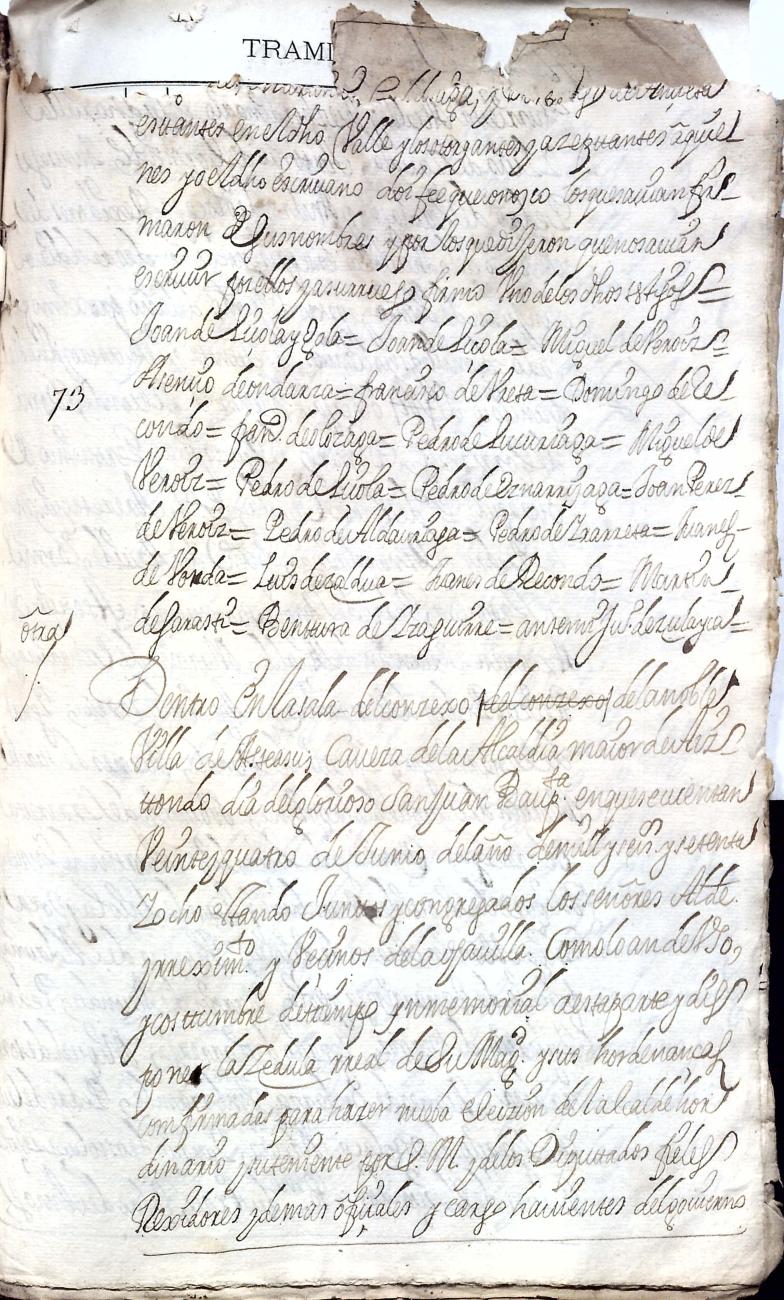 TRAMI
estantes en el dho Valle y los otorgantes y azeptantes a quie
nes yo el dho escriuano doi fee que conozco los que sauian fir
maron de sus nombres y por los que dixeron que no sauian
escriuir por ellos y a su ruego firmo Vno de los dhos testigos =
Joan de Liçola y = Joan de Liçola = Miguel de Verotz =
Asencio de ondarza = francisco de Vreta = Domingo de Re
73
condo = franco. de olozaga = Pedro de Lucuriaga = Miguel de
Verotz = Pedro de Liçola = Pedro de Eznarriçaga = Joan Perez
de Verotz = Pedro de Aldauriaga = Pedro de Yrarreta = Juanes
de Vonda = Luis de zaldua = Juanes de Recondo = Martin
de Garasti = Bentura de Yraguirre = ante mi Ju. de zulayca =
otra
Dentro En la sala del conzexo del conzexo de la noble
Villa de Asteasu Caueza de la Alcaldia maior de Arez
ttondo dia del glorioso san Juan Bauptta. en que se cuentan
Veinte y quatro de Junio del año de mill y seisº y setenta
Y ocho estando Juntos y congregados los señores Alde.
y rreximto. y Vecinos de la dha uilla. Como lo an de Vso,
y costtumbre de tiempo ynmemorial a esta parte y dis
pone la Zedula rreal de Su Magd. y sus hordenanças
comfirmadas para hazer nueba elezion de Alcalde hor
dinario y su teniente por S. M. y de los Diputtados fieles
Rexidores y demas ofiçiales y cargo hauientes del gouierno